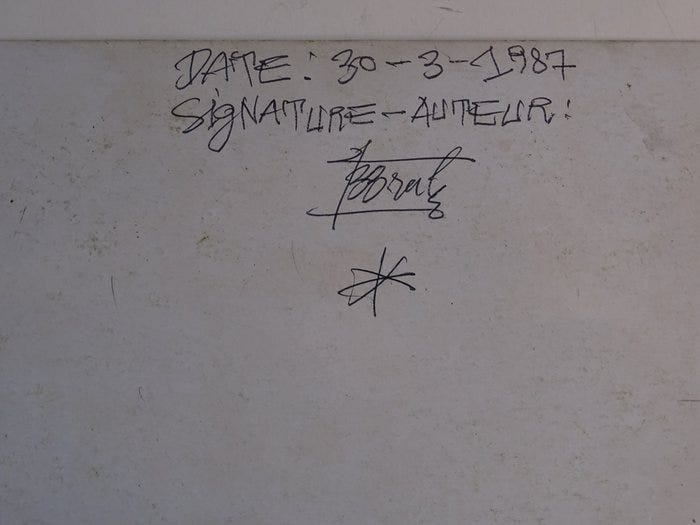 DATE: 30-3-1987
SIGNATURE-AUTEUR: